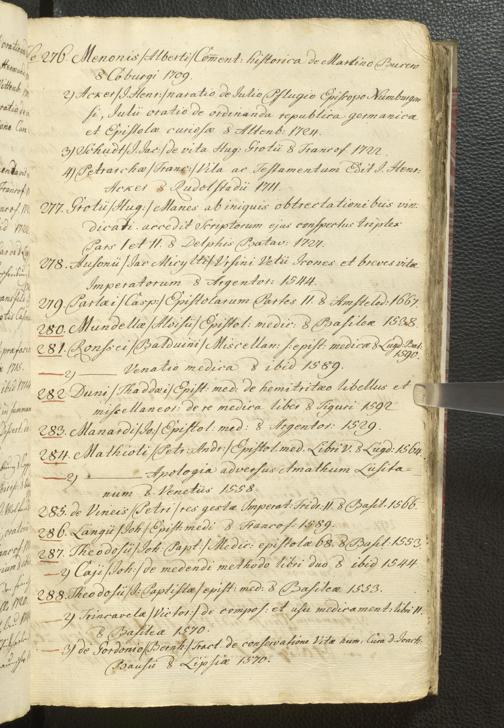 276. Menonis/Alberti/Coment: historica de Martino Bucero
8 Coburgi 1709.
2) Acker/J. Henr:/naratio de Julio Pflugio Episcopo Numburgen
si, Julii oratio de ordinanda republica germanica
et Epistolæ curiosæ 8 Altenb: 1724.
3) Schudt/J. Jac:/de vita Hug: Grotii 8 Francof 1722.
4) Petrarchæ/Franc:/Vita ac Testamentum Edit J. Henr:
Acker 8 Rudolstadii 1711.
277. Grotii/Hug:/Manes ab iniquis obtrectationibus vin
dicati. accedit Scriptorum ejus conspectus triplex
Pars I et II. 8 Delphis Batav: 1727.
278. Ausonii/Jac Micylli/Ursini Velii Icones et breves vitæ
Imperatorum 8 Argentor: 1544.
279. Barlæi/Casp:/Epistolarum Partes II. 8 Amsteled: 1667.
280. Mundellæ/Aloisii/Epistol: medic: 8 Basileæ 1538.
281. Ronssei/Balduini/Miscellan: s: epist: medicæ 8 Lugd Bat:
1590.
2) —— Venatio medica 8 ibid 1589.
282. Duni/Thaddæi/Epist: med. de hemitritæo libellus et
miscellaneor: de re medica liber 8 Tiguri 1592
283. Manardi/Jo:/Epistol: med: 8 Argentor: 1529.
284. Mathioli/Petr: Andr:/Epistol: med. Libri V. 8 Lugd: 1564.
2) —— Apologia adversus Amathum Lusita-
num 8 Venetiis 1558.
285. de Vineis/Petri/res gestæ Imperat: Frid: II. 8 Basil: 1566.
286. Langii/Joh:/Epist: medi 8 Francof: 1589.
287. Theodosii/Joh: Bapt:/Medic: epistolæ 68. 8 Basil: 1553.
2) Caji/Joh:/de medendi methodo libri duo 8 ibid 1544.
288. Theodosii/J: Baptistæ/epist: med: 8 Basileæ 1553.
2) Trincavelæ/Victor:/de compos: et usu medicament: libri II.
8 Basileæ 1570.
3) de Gordonio/Bernh:/Tract. de conservatione Vitæ hum: Cura D. Joach:
Bausii 8 Lipsiæ 1570.